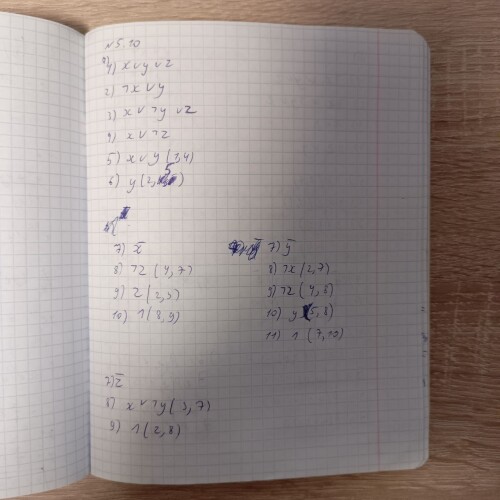 N 5.10
a) 1) x ∨ y ∨ z
2) ¬x ∨ y
3) x ∨ ¬y ∨ z
4) x ∨ ¬z
5) x ∨ y (3,4)
6) y (2,5)
7) x̄
8) ¬z (4,7)
9) z (2,5)
10) 1 (8,9)
7) ȳ
8) ¬x (2,7)
9) ¬z (4,8)
10) y (5,8)
11) 1 (7,10)
7) z̄
8) x ∨ ¬y (3,7)
9) 1 (2,8)